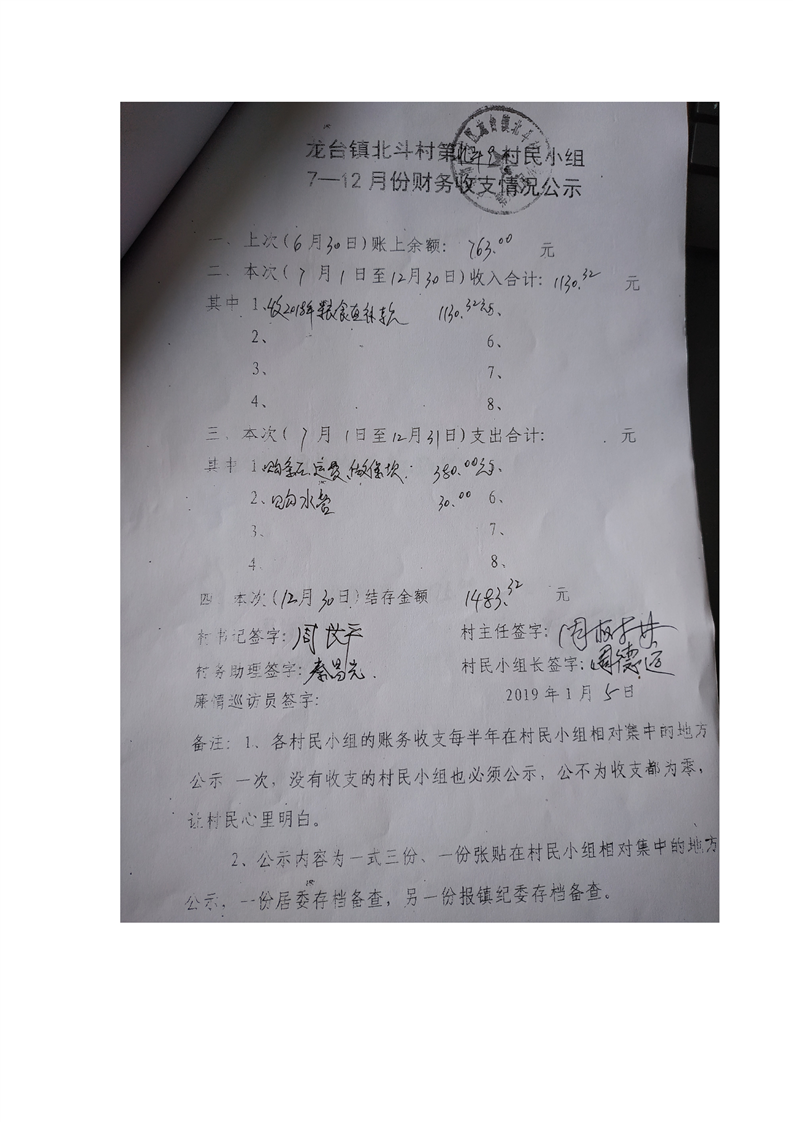 龙台镇北斗村第 村民小组
7—12月份财务收支情况公示
一、上次(6月30日)账上余额: 763.00 元
二、本次(7月1日至12月30日)收入合计: 1130.32 元
其中 1、收2018年粮食直补款 1130.32元 5、
2、 6、
3、 7、
4、 8、
三、本次(7月1日至12月31日)支出合计: 元
其中 1 购条石、运费、做堡坎: 380.00元 5、
2、购水管 30.00 6、
3、 7、
4、 8、
四、本次(12月30日)结存金额 1483.32 元
村书记签字: 村主任签字:
村务助理签字:秦昌先 村民小组长签字:周德运
廉情巡访员签字: 2019年1月5日
备注: 1、各村民小组的账务收支每半年在村民小组相对集中的地方
公示 一次,没有收支的村民小组也必须公示,公不为收支都为零,
让村民心里明白。
2、公示内容为一式三份、一份张贴在村民小组相对集中的地方
公示,一份居委存档备查,另一份报镇纪委存档备查。